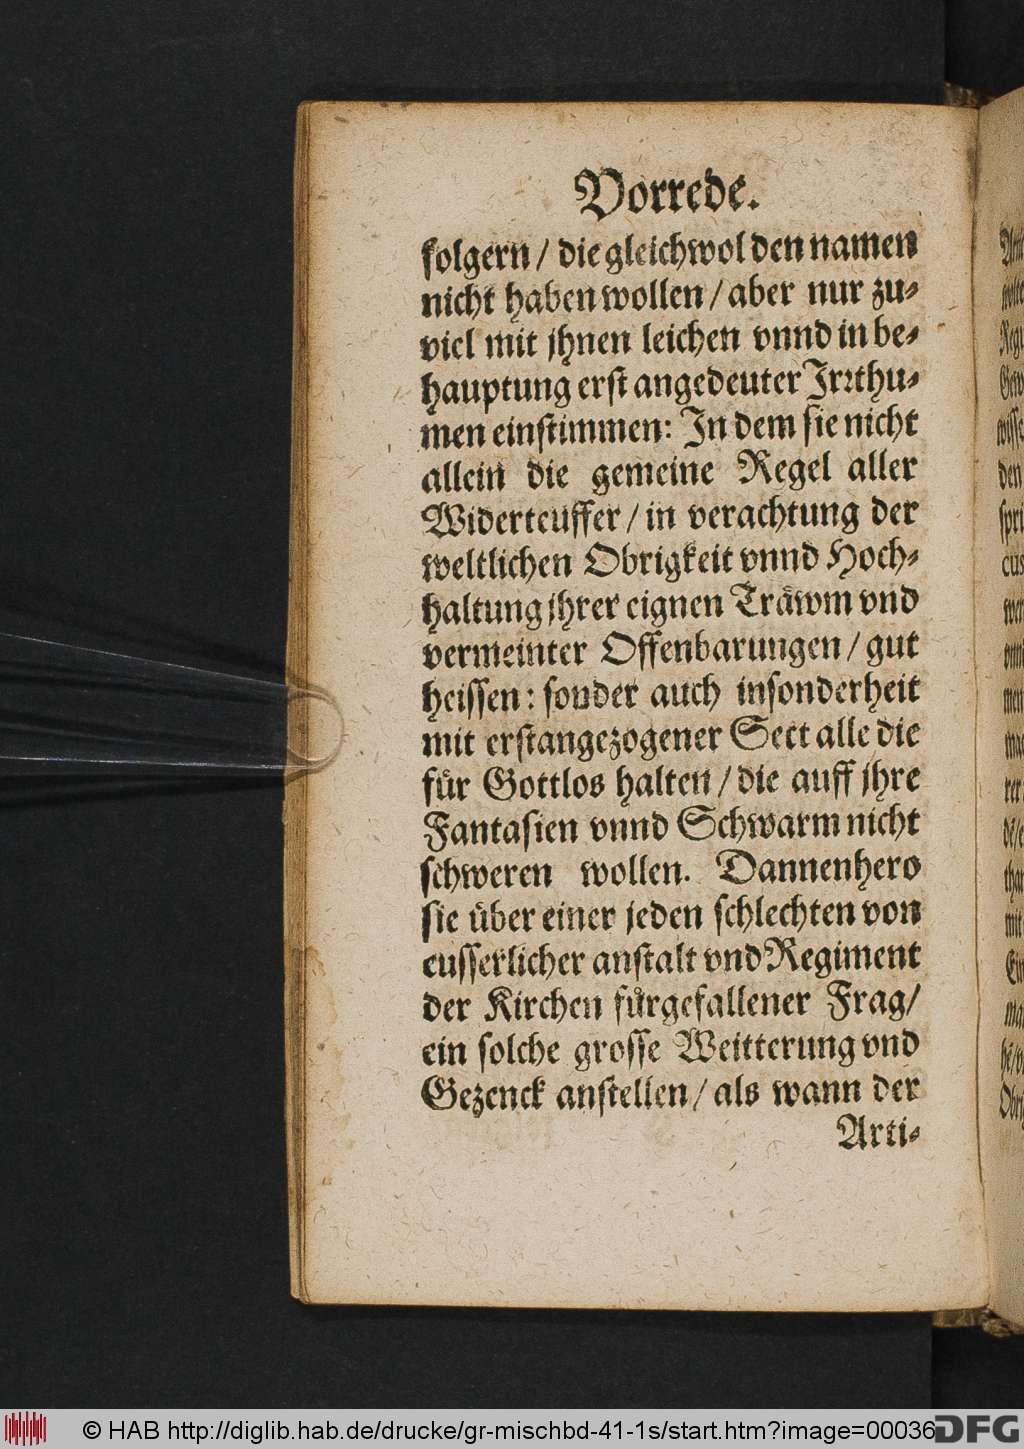 Vorrede.
folgern / die gleichwol den namen
nicht haben wollen / aber nur zu-
viel mit jhnen leichen vnnd in be-
hauptung erst angedeuter Jrꝛthu-
men einstimmen: Jn dem sie nicht
allein die gemeine Regel aller
Widerteuffer / in verachtung der
weltlichen Obrigkeit vnnd Hoch-
haltung jhrer eignen Traͤwm vnd
vermeinter Offenbarungen / gut
heissen: sonder auch insonderheit
mit erstangezogener Sect alle die
fuͤr Gottlos halten / die auff jhre
Fantasien vnnd Schwarm nicht
schweren wollen. Dannenhero
sie uͤber einer jeden schlechten von
eusserlicher anstalt vnd Regiment
der Kirchen fuͤrgefallener Frag /
ein solche grosse Weitterung vnd
Gezenck anstellen / als wann der
Arti-
© HAB http://diglib.hab.de/drucke/gr-mischbd-41-1s/start.htm?image=00036
DFG